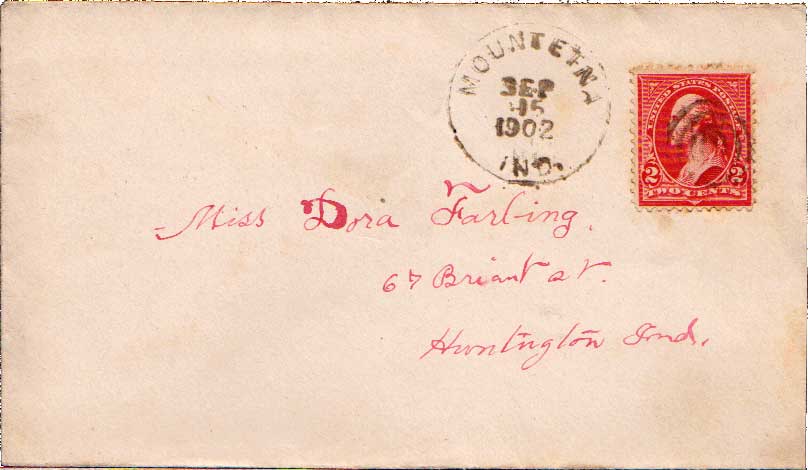 MOUNT ETNA
SEP
15
1902
IND.
UNITED STATES POSTAGE
2 2
TWO CENTS
Miss Dora Farling.
67 Briant st.
Huntington Ind.